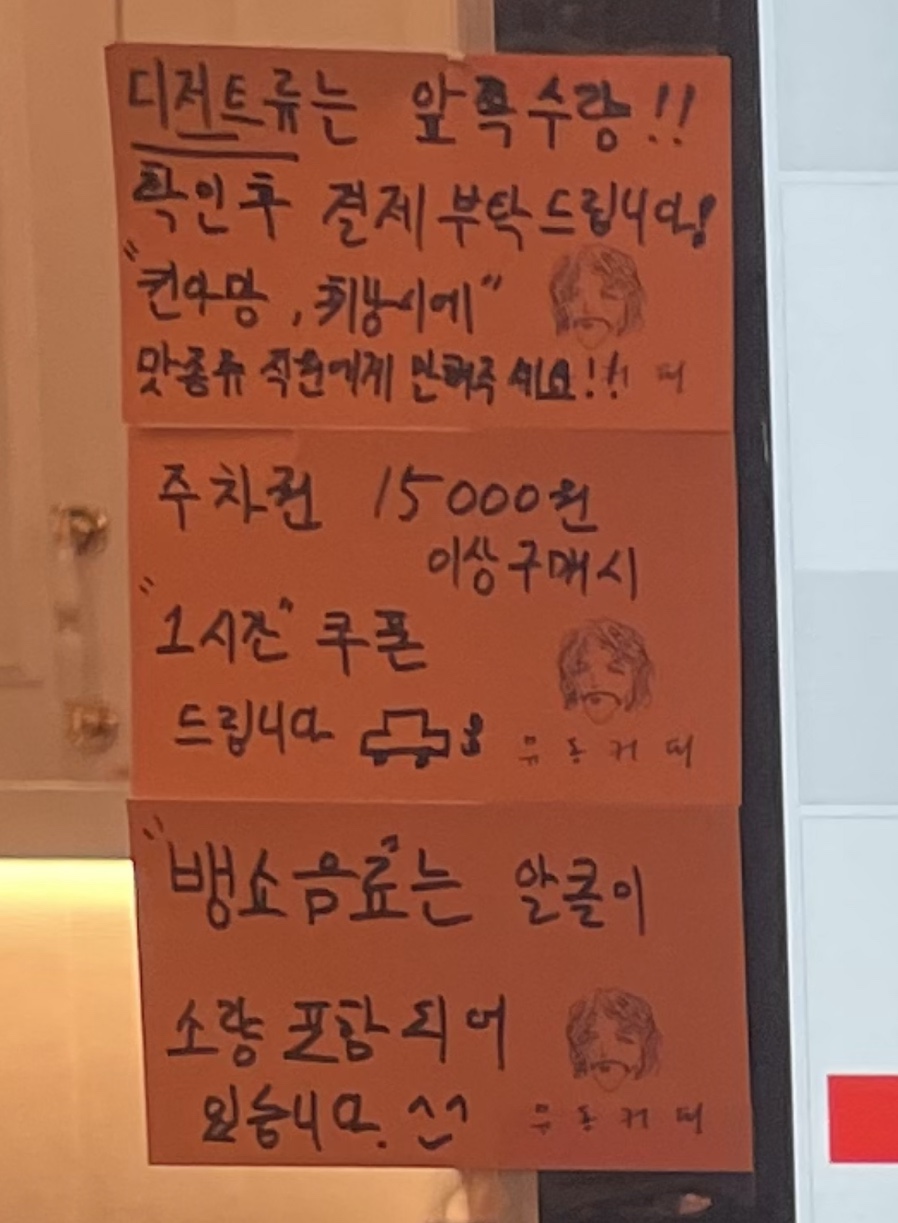 디저트류는 앞쪽수량!!
확인후 결제 부탁드립니다!
"컨아망, 휘낭시에"
맛종류 직원에게 말해주세요!!
커 피
주차권 15000원
이상구매시
"1시간" 쿠폰
드립니다
유 동 커 피
"뱅쇼음료"는 알콜이
소량 포함 되어
있습니다. ^^
유 동 커 피